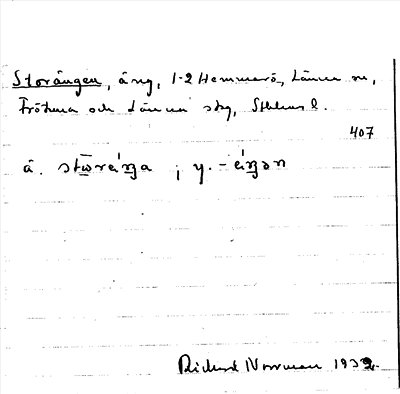 Storängen, äng, 1-2 Hemmarö, Länna sn,
Frötuna och Länna skg, Sthlms l.
407
ä. stωreiŋa ; y. -eiŋən
Richard Norrman 1932